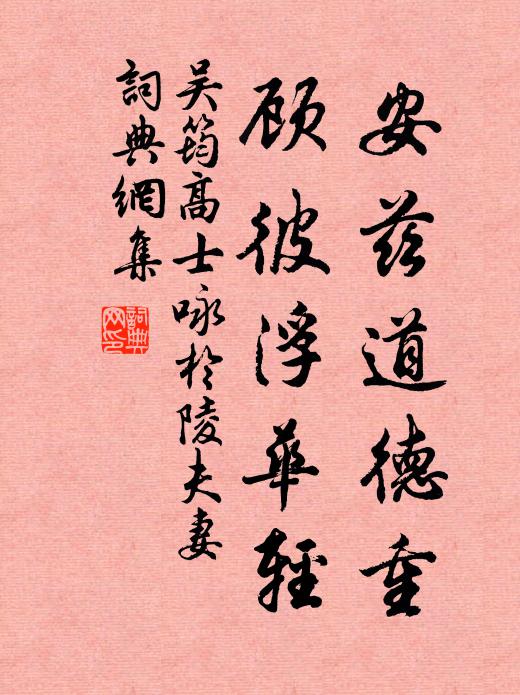 安兹道德重
顾彼浮華輕
吴筠高士咏於陵夫妻
詞典網集
詞典网印